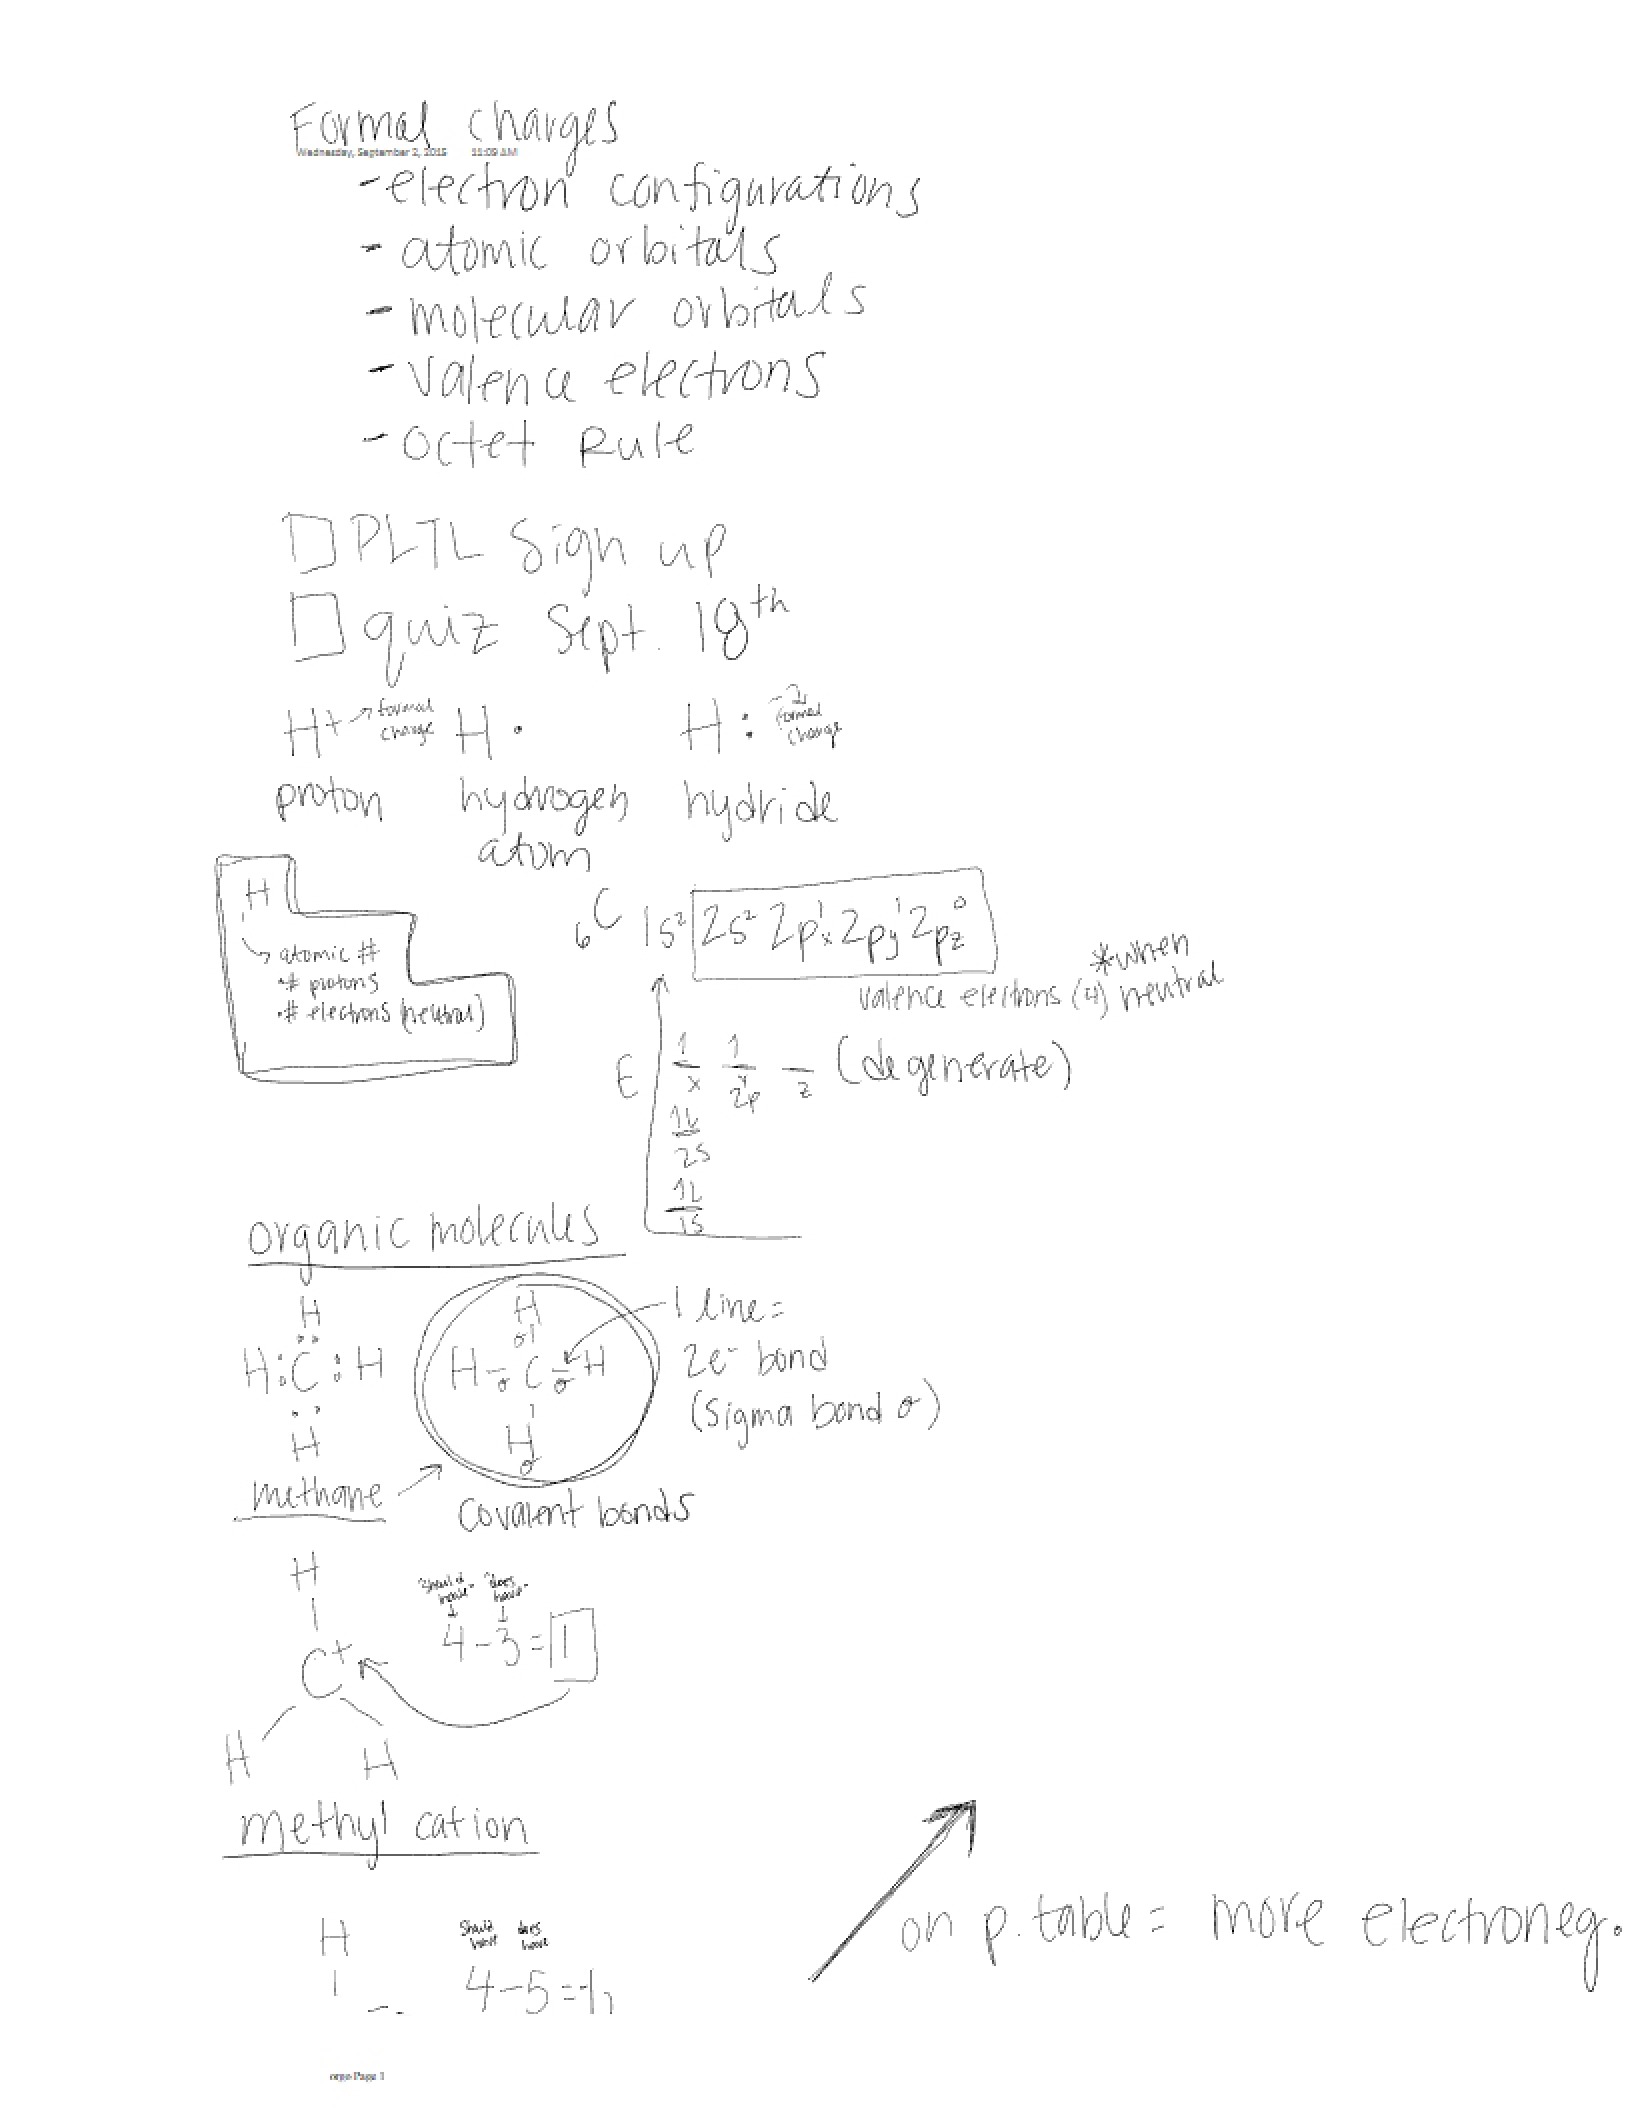 Formal charges
Wednesday, September 2, 2015 11:09 AM
- electron configurations
- atomic orbitals
- molecular orbitals
- valence electrons
- octet Rule
PLTL sign up
quiz Sept. 18th
H+ → formal charge H· H:
formal charge
proton hydrogen atom hydride
H
→ atomic #
·# protons
·# electrons (neutral)
₆C 1s² 2s² 2pₓ¹ 2py¹ 2pz⁰
valence electrons (4) *when neutral
E 1 1 (degenerate)
x y z
2p
1L
2s
1L
1s
organic molecules
H
H:C:H
H
methane
H
σ
H-C-H
σ σ
H
σ
1 line =
2e⁻ bond
(sigma bond σ)
covalent bonds
H
C+
H H
should have does have
4-3=1
methyl cation
H
should have does have
4-5=-1
on p. table = more electroneg.
orgo Page 1